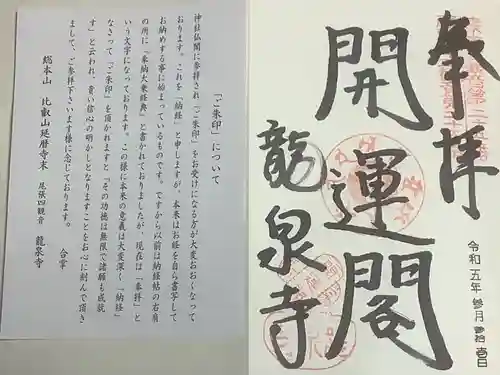 「ご朱印」について
神社仏閣に参拝され「ご朱印」をお受けになる方が大変おおくなって
おります。これを「納経」と申しますが、本来はお経を自ら書写して
お納めする事に始まっているものです。ですから以前は納経帖の右肩
の所に「奉納大乗経典」と書かれておりましたが、現在は「奉拝」と
いう文字になっております。この様に本来の意義は大変深く「納経」
なさって「ご朱印」を頂かれますと「その功徳は無限で諸願も成就
す」と云われ、貴い信心の明かしとなりますことをお心に刻んで頂き
まして、ご参拝下さいます様に念じております。
合掌
総本山 比叡山延暦寺末 尾張四観音 龍泉寺
奉拝
開運閣
龍泉寺
令和五年 参月 参拾壹日